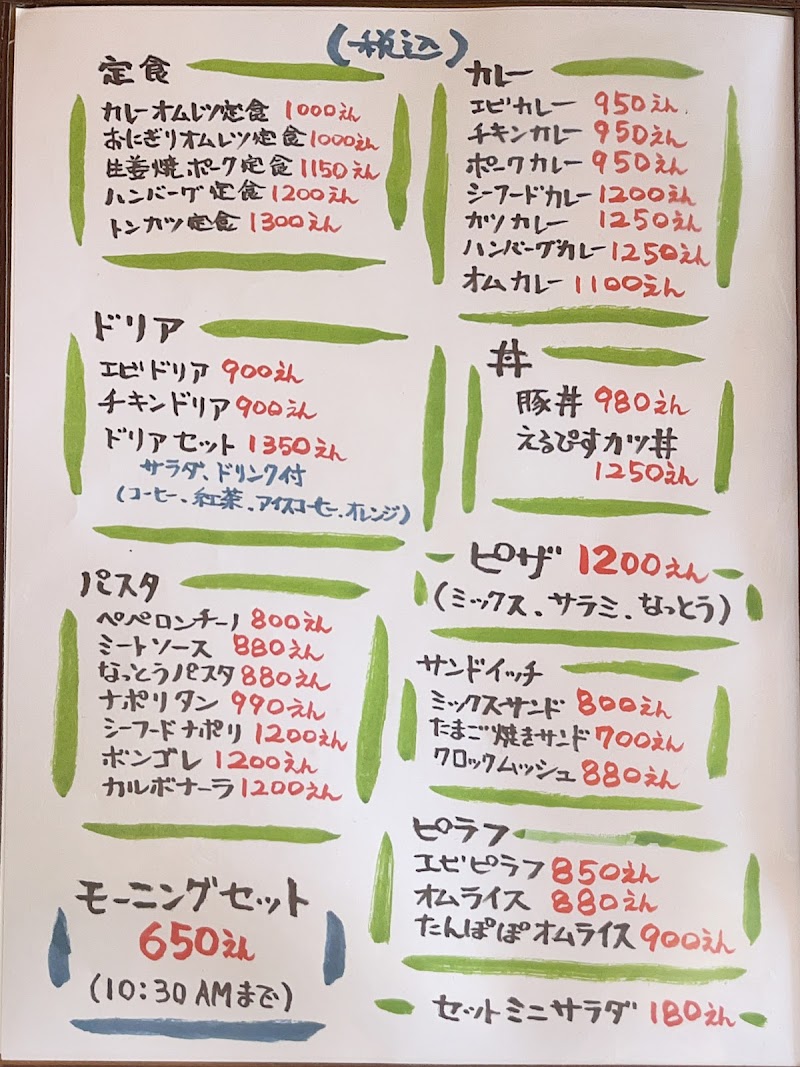 (税込)
定食
カレーオムレツ定食 1000えん
おにぎりオムレツ定食 1000えん
生姜焼ポーク定食 1150えん
ハンバーグ定食 1200えん
トンカツ定食 1300えん
カレー
エビカレー 950えん
チキンカレー 950えん
ポークカレー 950えん
シーフードカレー 1200えん
カツカレー 1250えん
ハンバーグカレー 1250えん
オムカレー 1100えん
ドリア
エビドリア 900えん
チキンドリア 900えん
ドリアセット 1350えん
サラダ、ドリンク付
(コーヒー、紅茶、アイスコーヒー、オレンジ)
丼
豚丼 980えん
えるぴすカツ丼
1250えん
ピザ 1200えん
(ミックス、サラミ、なっとう)
パスタ
ペペロンチーノ 800えん
ミートソース 880えん
なっとうパスタ 880えん
ナポリタン 990えん
シーフードナポリ 1200えん
ボンゴレ 1200えん
カルボナーラ 1200えん
サンドイッチ
ミックスサンド 800えん
たまご焼きサンド 700えん
クロックムッシュ 880えん
ピラフ
エビピラフ 850えん
オムライス 880えん
たんぽぽオムライス 900えん
モーニングセット
650えん
(10:30AMまで)
セットミニサラダ 180えん